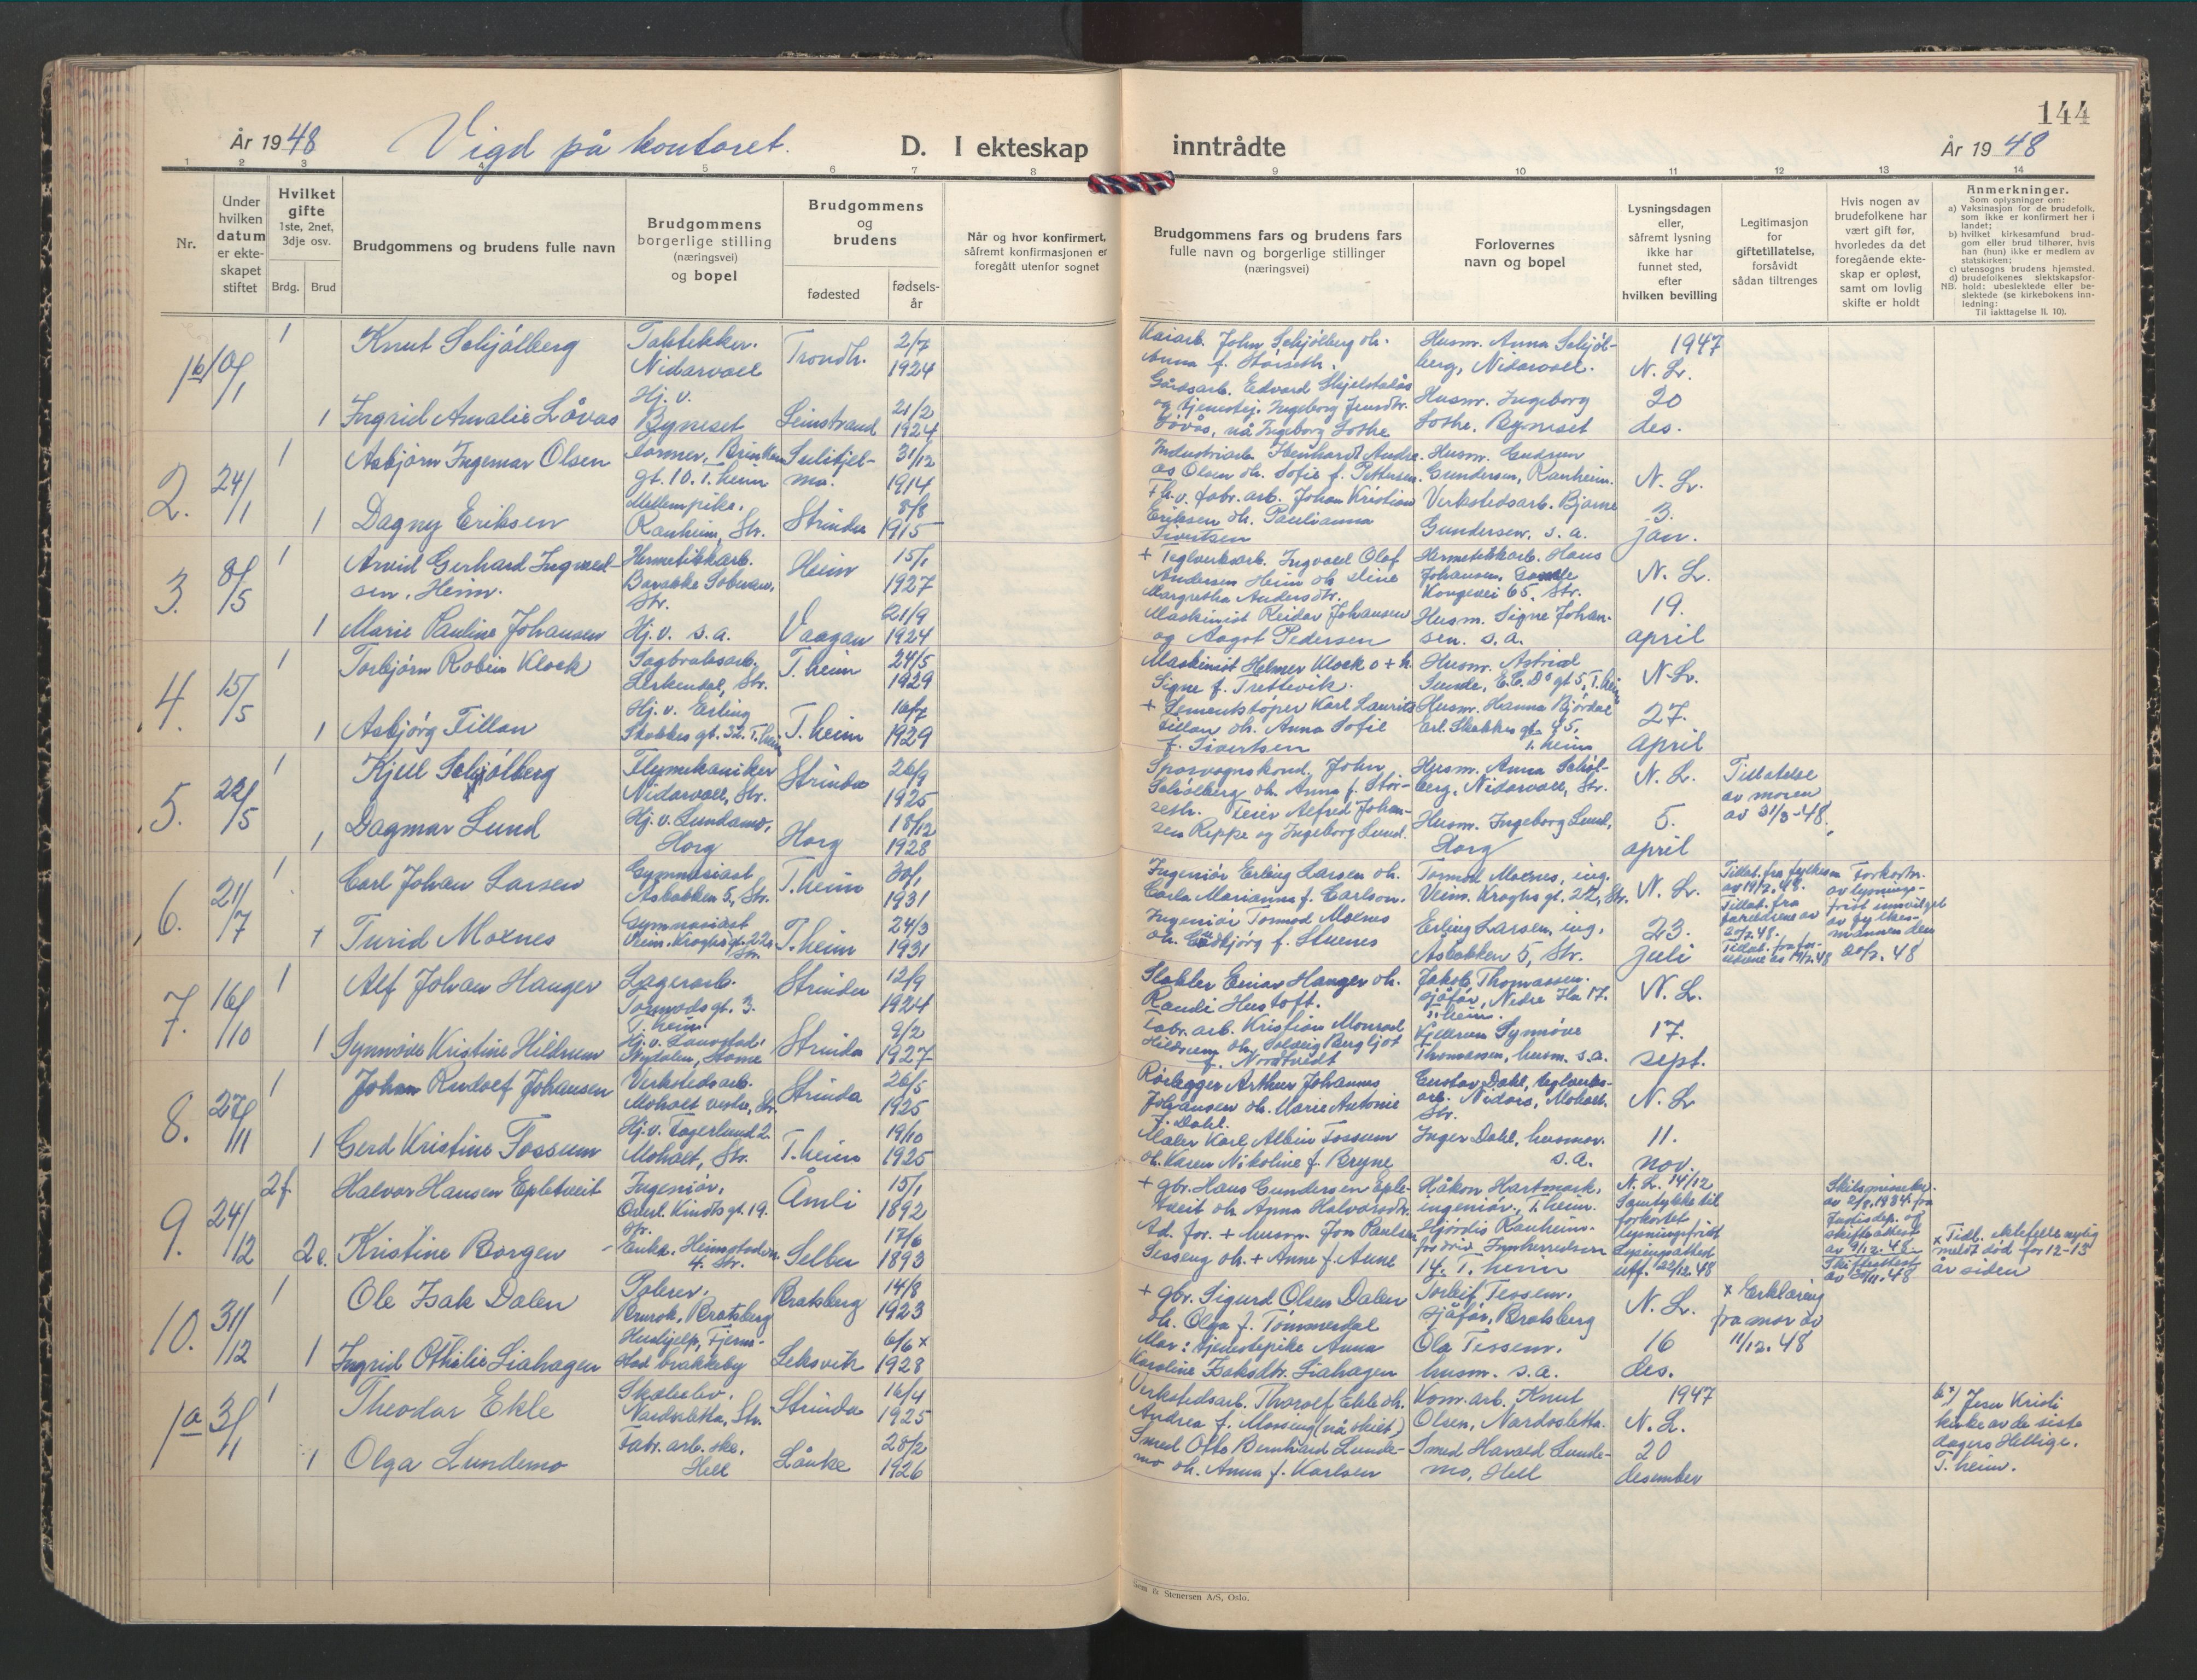 144
År 1948 Vigd på kontoret. D. I ekteskap inntrådte År 1948
1 2 3 4 5 6 7 8 9 10 11 12 13 14
Nr.
Under hvilken datum er ekteskapet stiftet
Hvilket gifte 1ste, 2net, 3dje osv.
Brdg. Brud
Brudgommens og brudens fulle navn
Brudgommens borgerlige stilling (næringsvei) og bopel
Brudgommens og brudens
fødested
fødsels-år
Når og hvor konfirmert, såfremt konfirmasjonen er foregått utenfor sognet
Brudgommens fars og brudens fars fulle navn og borgerlige stillinger (næringsvei)
Forlovernes navn og bopel
Lysningsdagen eller, såfremt lysning ikke har funnet sted, efter hvilken bevilling
Legitimasjon for giftetillatelse, forsåvidt sådan tiltrenges
Hvis nogen av brudefolkene har vært gift før, hvorledes da det foregående ekteskap er opløst, samt om lovlig skifte er holdt
Anmerkninger.
Som oplysninger om:
a) Vaksinasjon for de brudefolk, som ikke er konfirmert her i landet;
b) hvilket kirkesamfund brudgom eller brud tilhører, hvis han (hun) ikke er medlem av statskirken;
c) utensogns brudens hjemsted.
d) brudefolkenes slektskapsforhold: ubeslektede eller beslektede (se kirkebokens innledning:
NB.
Til iakttagelse II. 10).
1b 10/1 1 Knut Schjølberg Taktekker. Nidarvoll Trondh. 2/7 1924
Kaiarb. John Schjølberg oh. Anna f. Størseth.
Husm. Anna Schjølberg, Nidarvoll.
1947 N. L. 20 des.
1 Ingrid Amalie Løvås Hj. v. Byneset Leinstrand 21/2 1924
Gårdsarb. Edvard Skjelstadås og tjenestej. Ingeborg Jensdtr. Løvås, nå Ingeborg Lothe
Husm. Ingeborg Lothe, Byneset
2. 24/1 1 Asbjørn Ingemar Olsen Former, gt. 10. T.heim Sulitjelma. 31/12 1914
Industriarb. Andreas Olsen oh. Sofie f. Pettersen.
Husm. Gudrun Gundersen, Ranheim.
N. L. 3. jan.
1 Dagny Eriksen Mellempike, Ranheim, Str. Strinda 8/8 1915
fabr. arb. Johan Kristian Eriksen oh. Paulianna Sivertsen
Verkstedsarb. Bjarne Gundersen, s. a.
3. 8/5 1 Arvid Gerhard Ingvaldsen, Heim. Hermetikkarb. Barakke Str. Heim 15/1 1927
+ Teglverksarb. Ingvald Olaf Andersen Heim oh. Margretha Andersdtr.
Hermetikkarb. Hans Johansen, Gamle Kongevei 65, Str.
N. L. 19. april
1 Marie Pauline Johansen Hj. v. s. a. Vaagan 21/9 1924
Maskinist Reidar Johansen og Aagot Pedersen
Husm. Signe Johansen. s. a.
4. 15/5 1 Torbjørn Robein Klock Sagbruksarb. Lerkendal, Str. T.heim 24/5 1929
Maskinist Helmer Klock o + h. Signe f. Trettevik.
Husm. Astrid Sunde, E.C. D's gt 5, T.heim
N. L. 27. april
1 Asbjørg Tillan Hj. v. Erling Skakkes gt. 32. T.heim T.heim 10/7 1929
+ Sementstøper Karl Laurits Tillan oh. Anna Sofie f. Sivertsen
Husm. Hanna Bjørdal Erl. Skakkes gt. 45, T.heim
5. 22/5 1 Kjell Schjølberg Flymekaniker Nidarvoll, Str. Strinda 26/9 1925
Sporvognskond. John Schjølberg oh. Anna f. Størseth.
Husm. Anna Schjølberg, Nidarvoll, Str.
N. L. 5. april
Tillatelse av moren av 31/3-48.
1 Dagmar Lund Hj. v. Lundamo, Horg Horg 18/12 1928
Feier Alfred Johansen Reppe og Ingeborg Lund.
Husm. Ingeborg Lund, Horg
6. 21/7 1 Carl Johan Larsen Gymnasiast Asbakken 5, Str. T.heim 30/1 1931
Ingeniør Erling Larsen oh. Carla Marianne f. Carlson.
Tormod Moxnes, ing. Veim. Kroghs gt. 22, Str.
N. L. 23. juli
Tillat. fra fylkesm av 19/7. 48. Tillat. fra foreldrene av 20/7. 48. Tillat. fra foreldrene av 19/7. 48
Forkortn. av lysningsfrist innvilget av fylkesmannen den 20/7. 48
1 Turid Moxnes Gymnasiast Veim. Kroghs gt. 22 Str. T.heim 24/3 1931
Ingeniør Tormod Moxnes oh. Gudbjørg f. Stuenes
Erling Larsen, ing. Asbakken 5, Str.
7. 16/10 1 Alf Johan Hanger Lagerarb. Tormodsgt. 3. T.heim Strinda 12/9 1924
Stabler Einar Hanger oh. Randi Hustoft.
Jakob Thomassen. sjåfør, Nedre Ila 17. T.heim.
N. L. 17. sept.
1 Synnøve Kristine Hildrum Hj. v. Strinda 9/2 1927
Fabr. arb. Kristian Monrad Hildrum oh. Solveig Bergljot f. Nordtvedt
Synnøve Thomassen, husm. s. a.
8. 27/11 1 Johan Rudolf Johansen Verkstedsarb. Moholt vestre, Str. Strinda 26/5 1925
Rørlegger Arthur Johannes Johansen oh. Marie Antonie f. Dahl.
Gustav Dahl, teglverksarb. Nidaro, Moholt. Str.
N. L. 11. nov.
1 Gerd Kristine Fossum Hj. v. Fagerlund 2. Moholt, Str. T.heim 19/10 1925
Maler Karl Albin Fossum oh. Karen Nikoline f. Bryne
Inger Dahl, husmor. s. a.
9. 24/12 2 f. Halvor Hansen Epletveit Ingeniør, Oberl. Kindts gt. 19. Str. Åmli 15/1 1892
+ gbr. Hans Gundersen Epletveit oh. Anna Halvorsdtr.
Håkon Hartmark, ingeniør, T.heim.
N. L. 14/12 Samtykke til forkortet lysningsfrist Lysningsattest utf. 22/12. 48
Skilsmissebev. av 2/8. 1934 fra Justisdep. og skifteattest av 9/12. 48. Skifteattest av 30/11. 48
x Tidl. ektefelle nylig meldt død for 12-13 år siden
2 e. Kristine Borgen Enke. Heimstadvn. 4. Str. Selbu 17/6 1893
Ad. for. + husm. Jon Paulsen Sesseng oh. + Anne f. Aune
Hjørdis Ranheim. Innherredsvn 14. T.heim
10. 31/12 1 Ole Isak Dalen Polerer. Bratsberg Bratsberg 14/8 1923
+ gbr. Sigurd Olsen Dalen oh. Olga f. Tømmerdal
Torleif Tessem. sjåfør, Bratsberg
N. L. 16 des.
x Erklæring fra mor av 11/12. 48
1 Ingrid Othilie Liahagen Hushjelp, Fjermstad brakkeby Leksvik 6/6 x 1928
Mor: tjenestepike Anna Karoline Isaksdtr. Liahagen
Ola Tessem. husm. s. a.
1a 3/1 1 Theodor Ekle Skoelev. Nardosletta, Str. Strinda 16/4 1925
Verkstedsarb. Thorolf Ekle oh. Andrea f. Morseng (nå skilt)
Kom. arb. Knut Olsen, Nardosletta.
1947 N. L. 20 desember
b x) Jesu Kristi kirke av de siste dagers Hellige. T.heim.
1 Olga Lundemo Fabr. arb. ske. Hell Lånke 28/2 1926
Smed Otto Bernhard Lundemo oh. Anna f. Karlsen
Smed Harald Lundemo, Hell
Sem & Stenersen A/S, Oslo.